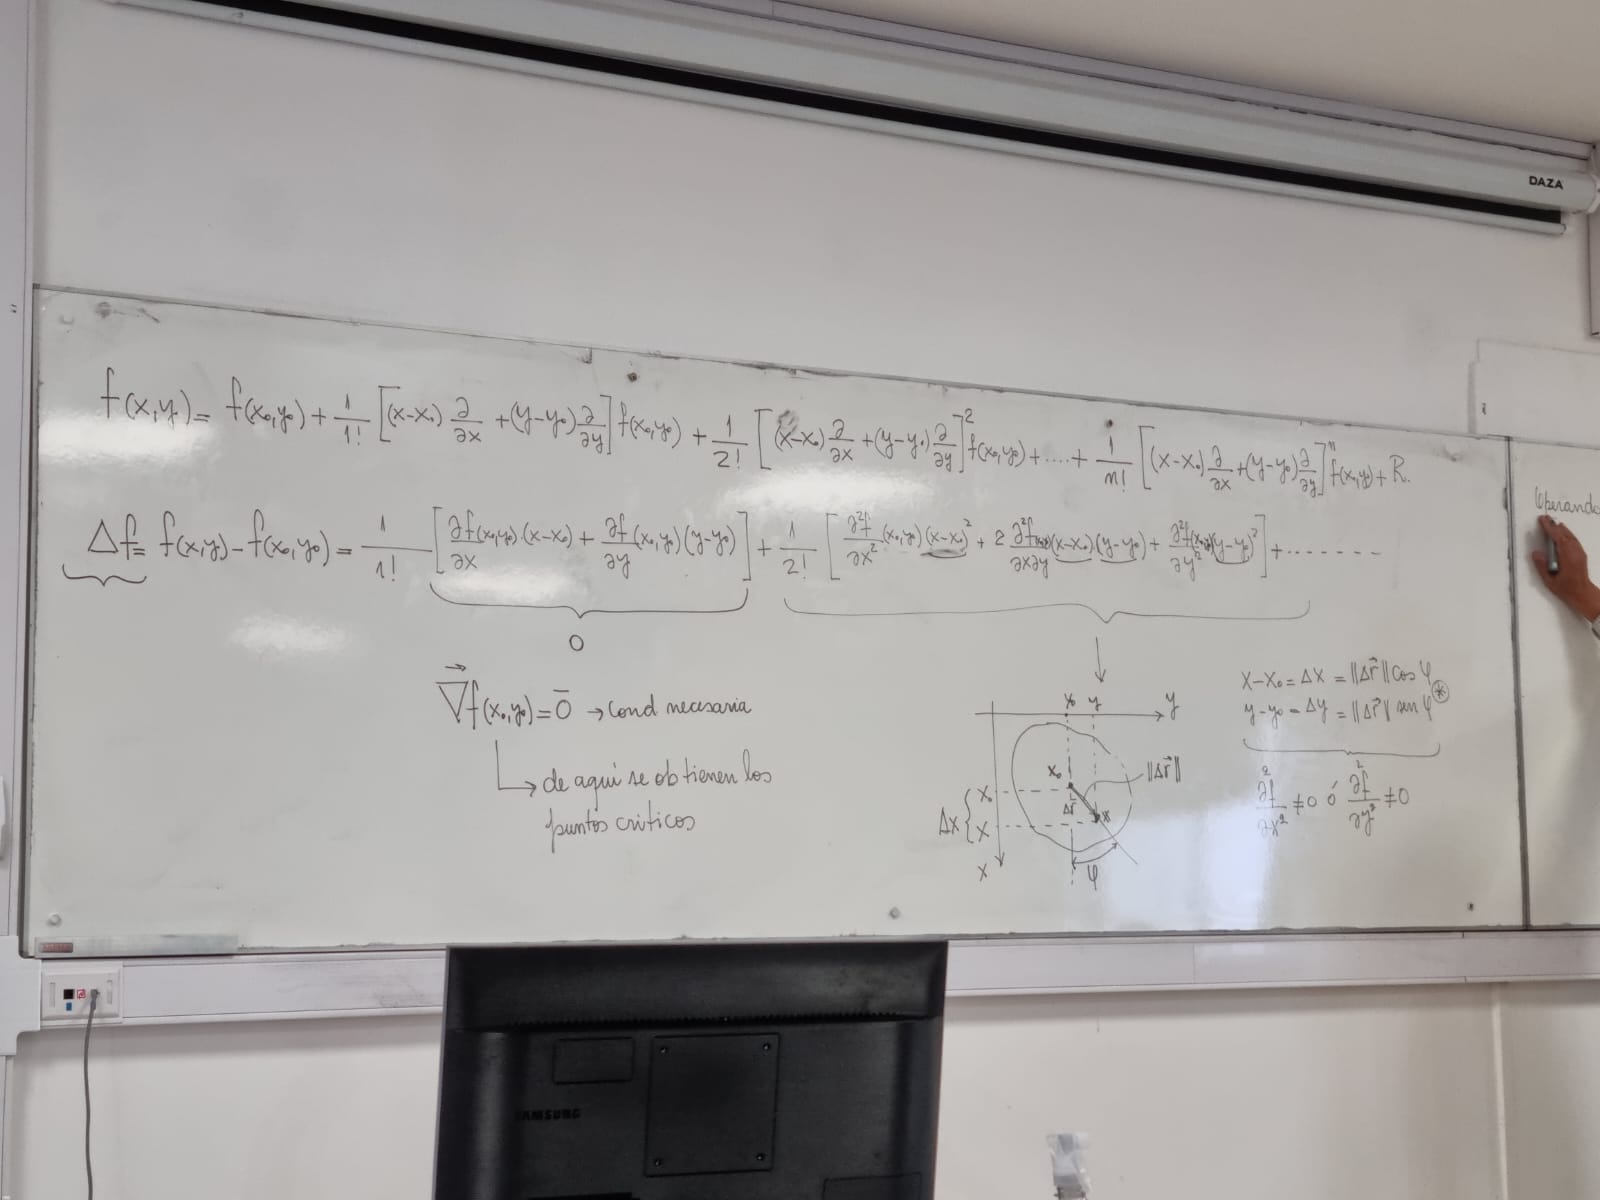 DAZA
f(x,y)= f(x₀,y₀) + 1/1! [(x-x₀) ∂/∂x + (y-y₀) ∂/∂y] f(x₀,y₀) + 1/2! [(x-x₀) ∂/∂x + (y-y₀) ∂/∂y]² f(x₀,y₀) + .... + 1/n! [(x-x₀) ∂/∂x + (y-y₀) ∂/∂y]ⁿ f(x₀,y₀) + R.
Operando
Δf = f(x,y) - f(x₀,y₀) = 1/1! [∂f/∂x (x₀,y₀).(x-x₀) + ∂f/∂y (x₀,y₀)(y-y₀)] + 1/2! [∂²f/∂x² (x₀,y₀)(x-x₀)² + 2 ∂²f/∂x∂y (x₀,y₀)(x-x₀)(y-y₀) + ∂²f/∂y² (x₀,y₀)(y-y₀)²] + .......
0
∇⃗f(x₀,y₀) = 0̄ → Cond necesaria
de aquí se obtienen los
puntos críticos
y₀ y y
x₀ ‖Δr⃗‖
Δx { x₀ Δr⃗ x
x
x φ
x-x₀ = Δx = ‖Δr⃗‖ cos φ
y-y₀ = Δy = ‖Δr⃗‖ sen φ ⊛
∂²f/∂x² ≠ 0 ó ∂²f/∂y² ≠ 0
SAMSUNG